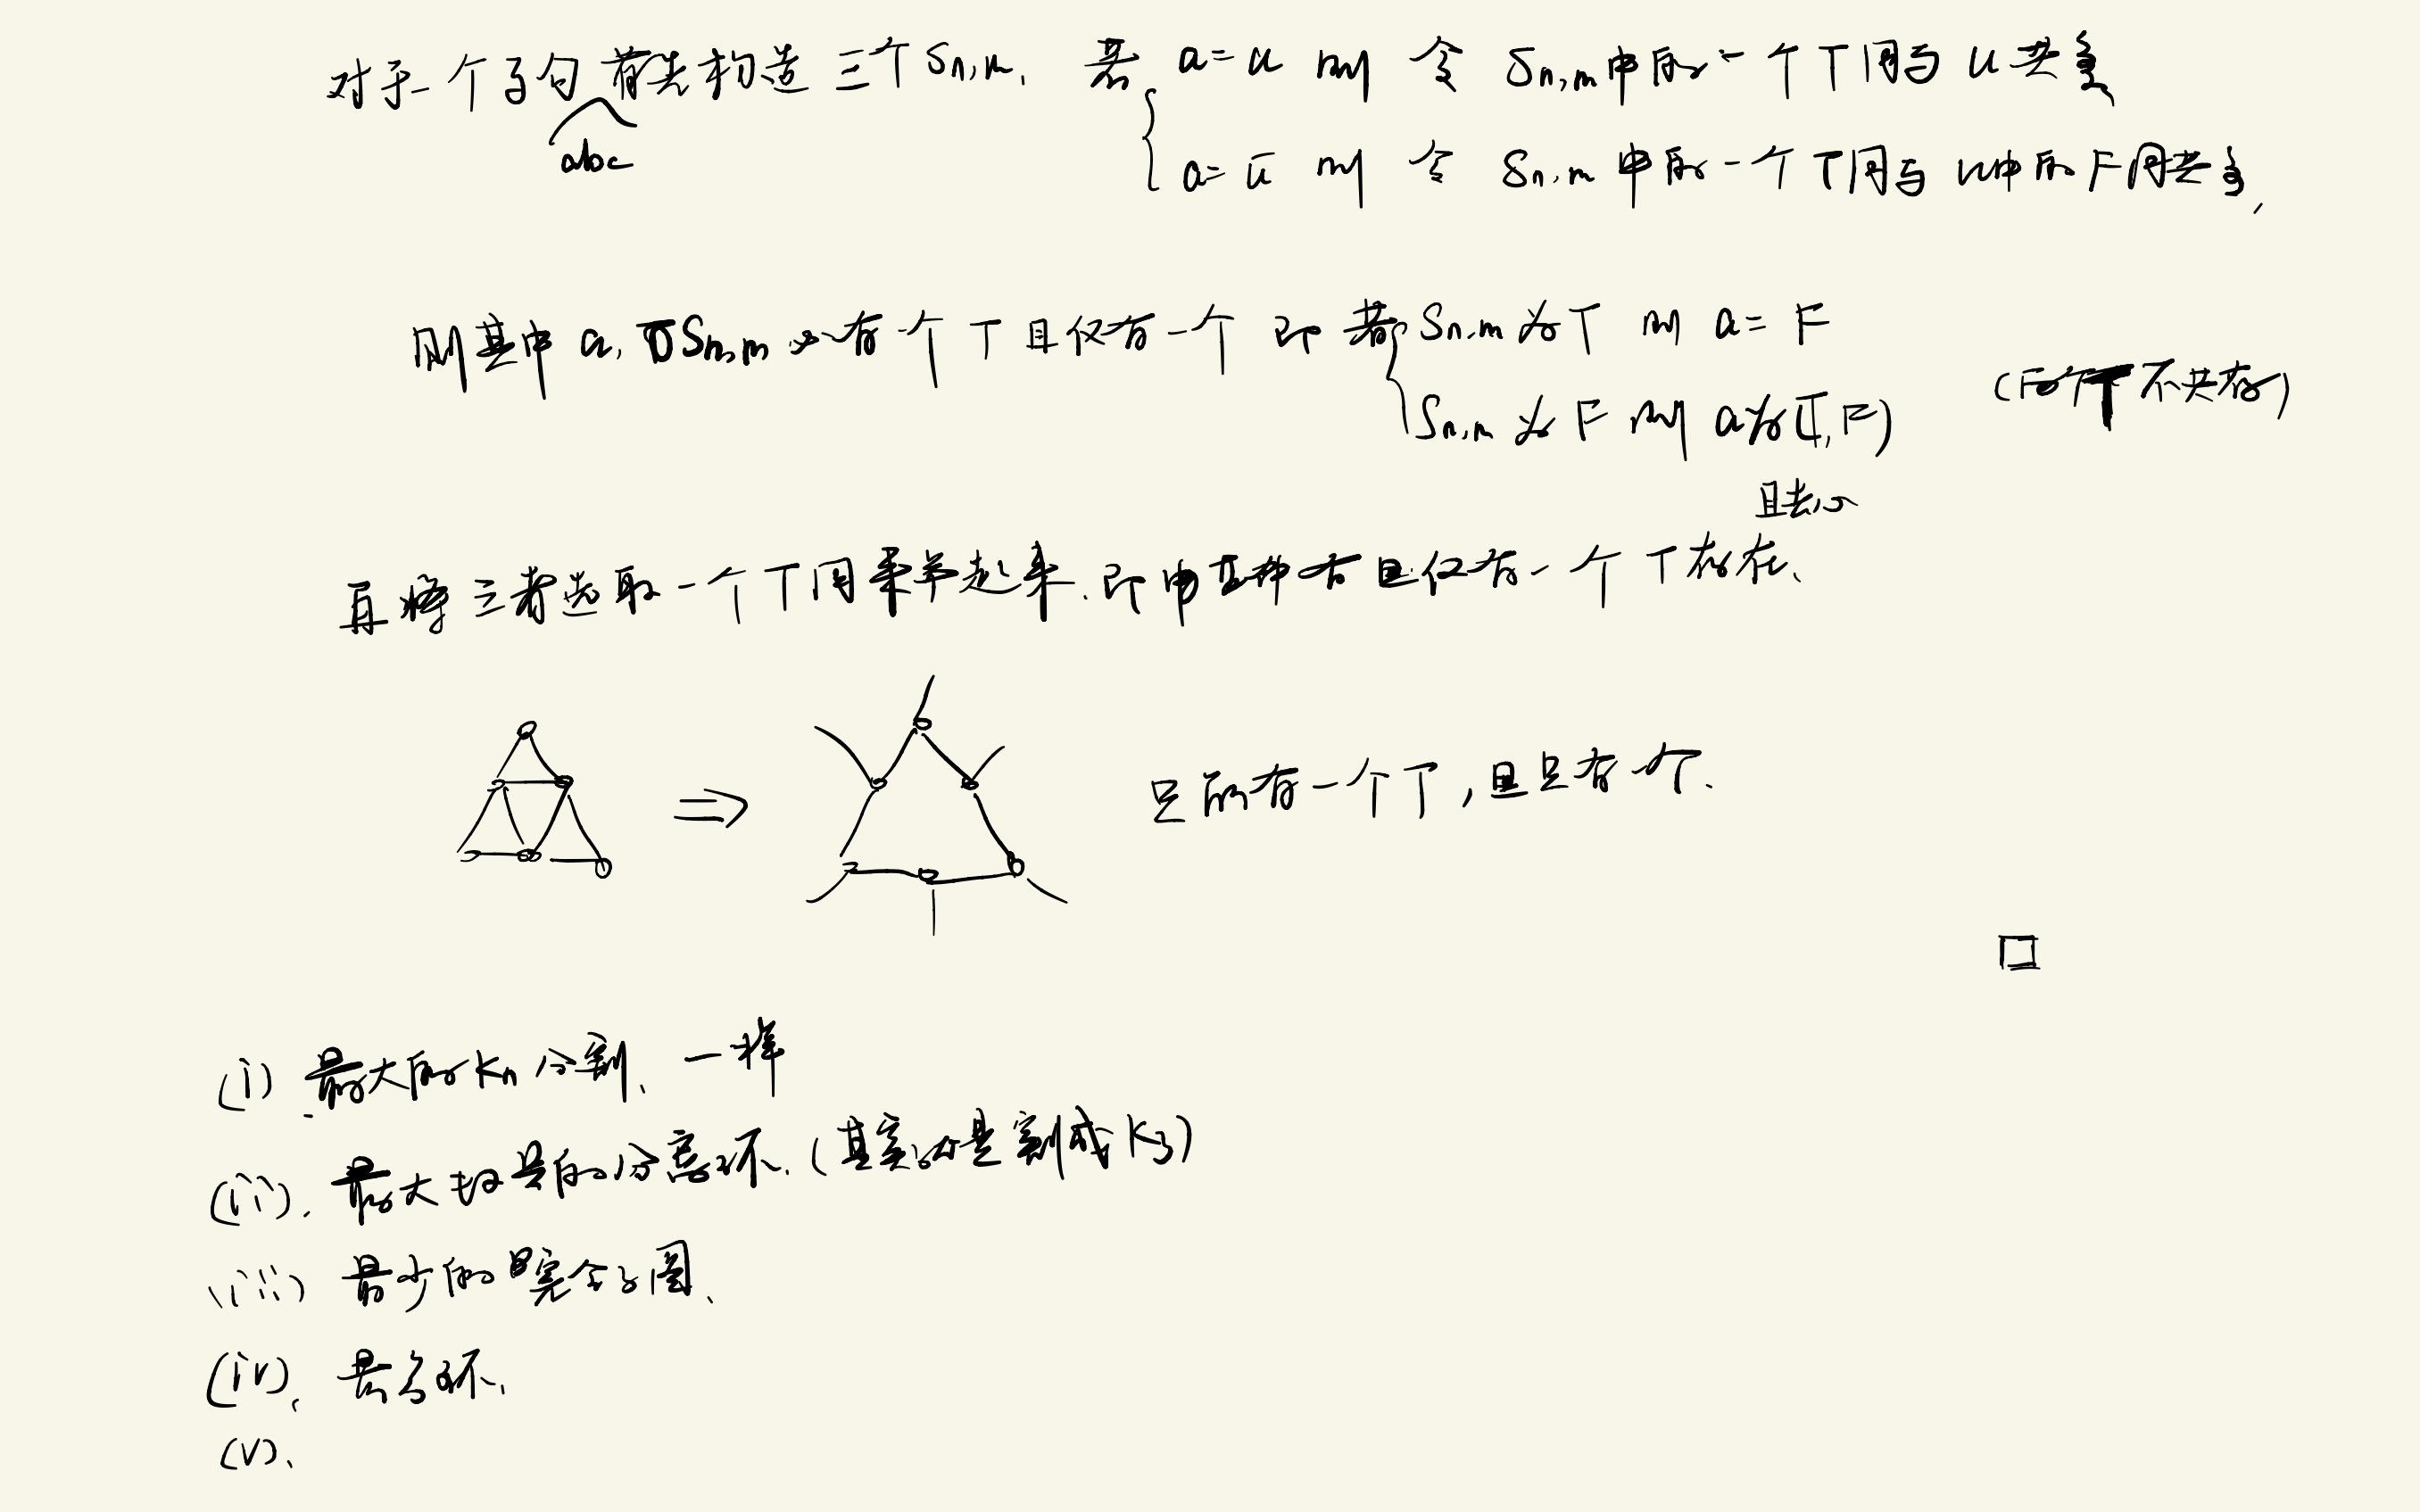 对于一个子句 首先构造三个 Sn,m. 若 a=u 则 令 Sn,m中的一个T图与 u 共享
abc
a=ū 则 令 Sn,m 中的一个T图与 u中的F图共享.
则其中 a, Sn,m 必有一个T且仅有一个 即 若 Sn,m 为 T 则 a=F
Sn,m 为 F 则 a为(T,F)
(F与T不共存)
再将三者选取一个T图 起来. 即 其中有且仅有一个T存在.
⇒ 只能有一个T, 且只有一个.
□
(i) 最大的Kn分割. 一样
(ii). 最大的分离环. (其实就是割成K3)
(iii) 最少的完全子图.
(iv). 最多环.
(v).